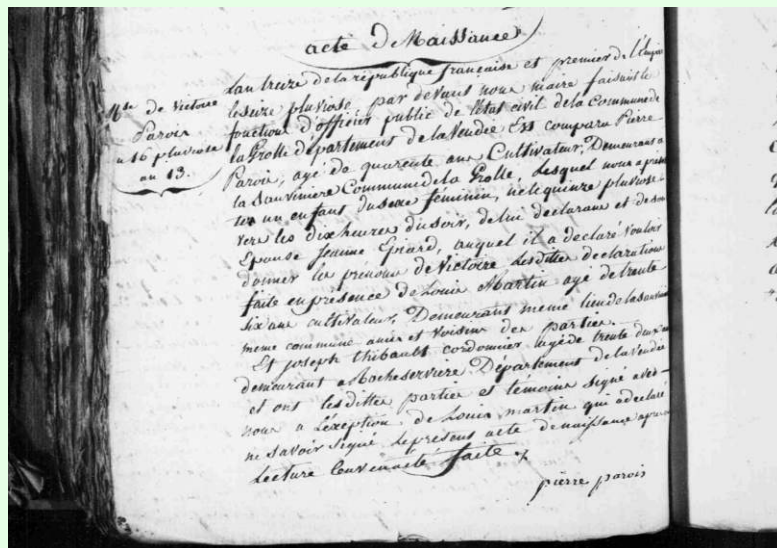 acte De Naissance
Nce de Victoire
Parois
u 16 pluviose
an 13.
Lan treize de la république française et premier de l'Empire
le seize pluviose par devant nous maire faisant le
fonction d'officier public de l'état civil de la Commune de
la Grolle département de la Vendée Est comparu Pierre
Parois, agé de quarente ans Cultivateur, Demeurant a
la Sauvinière Commune de la Grolle, lesquel nous a présen
ter un enfant du sexe féminin, né le quinze pluviose
vers les dix heures du soir, de lui declarant et de son
Epouse Jeanne Erard, auquel il a declaré vouloir
donner les prénoms de Victoire lesditte declaration
faite en présence de Louis Martin agé de trente
six ans cultivateur, Demeurant meme lieu de la
meme commune amis et voisins des partie.
Et joseph thibault cordonnier agé de trente deux ans
demeurant a Rocheserviere Département de la Vendée
et ont lesditte partie et témoins signé avec
nous a l'exeption de Louis martin qui a declaré
ne savoir signé le present acte de naissance apres
Lecture Leur en eté faite
pierre parois